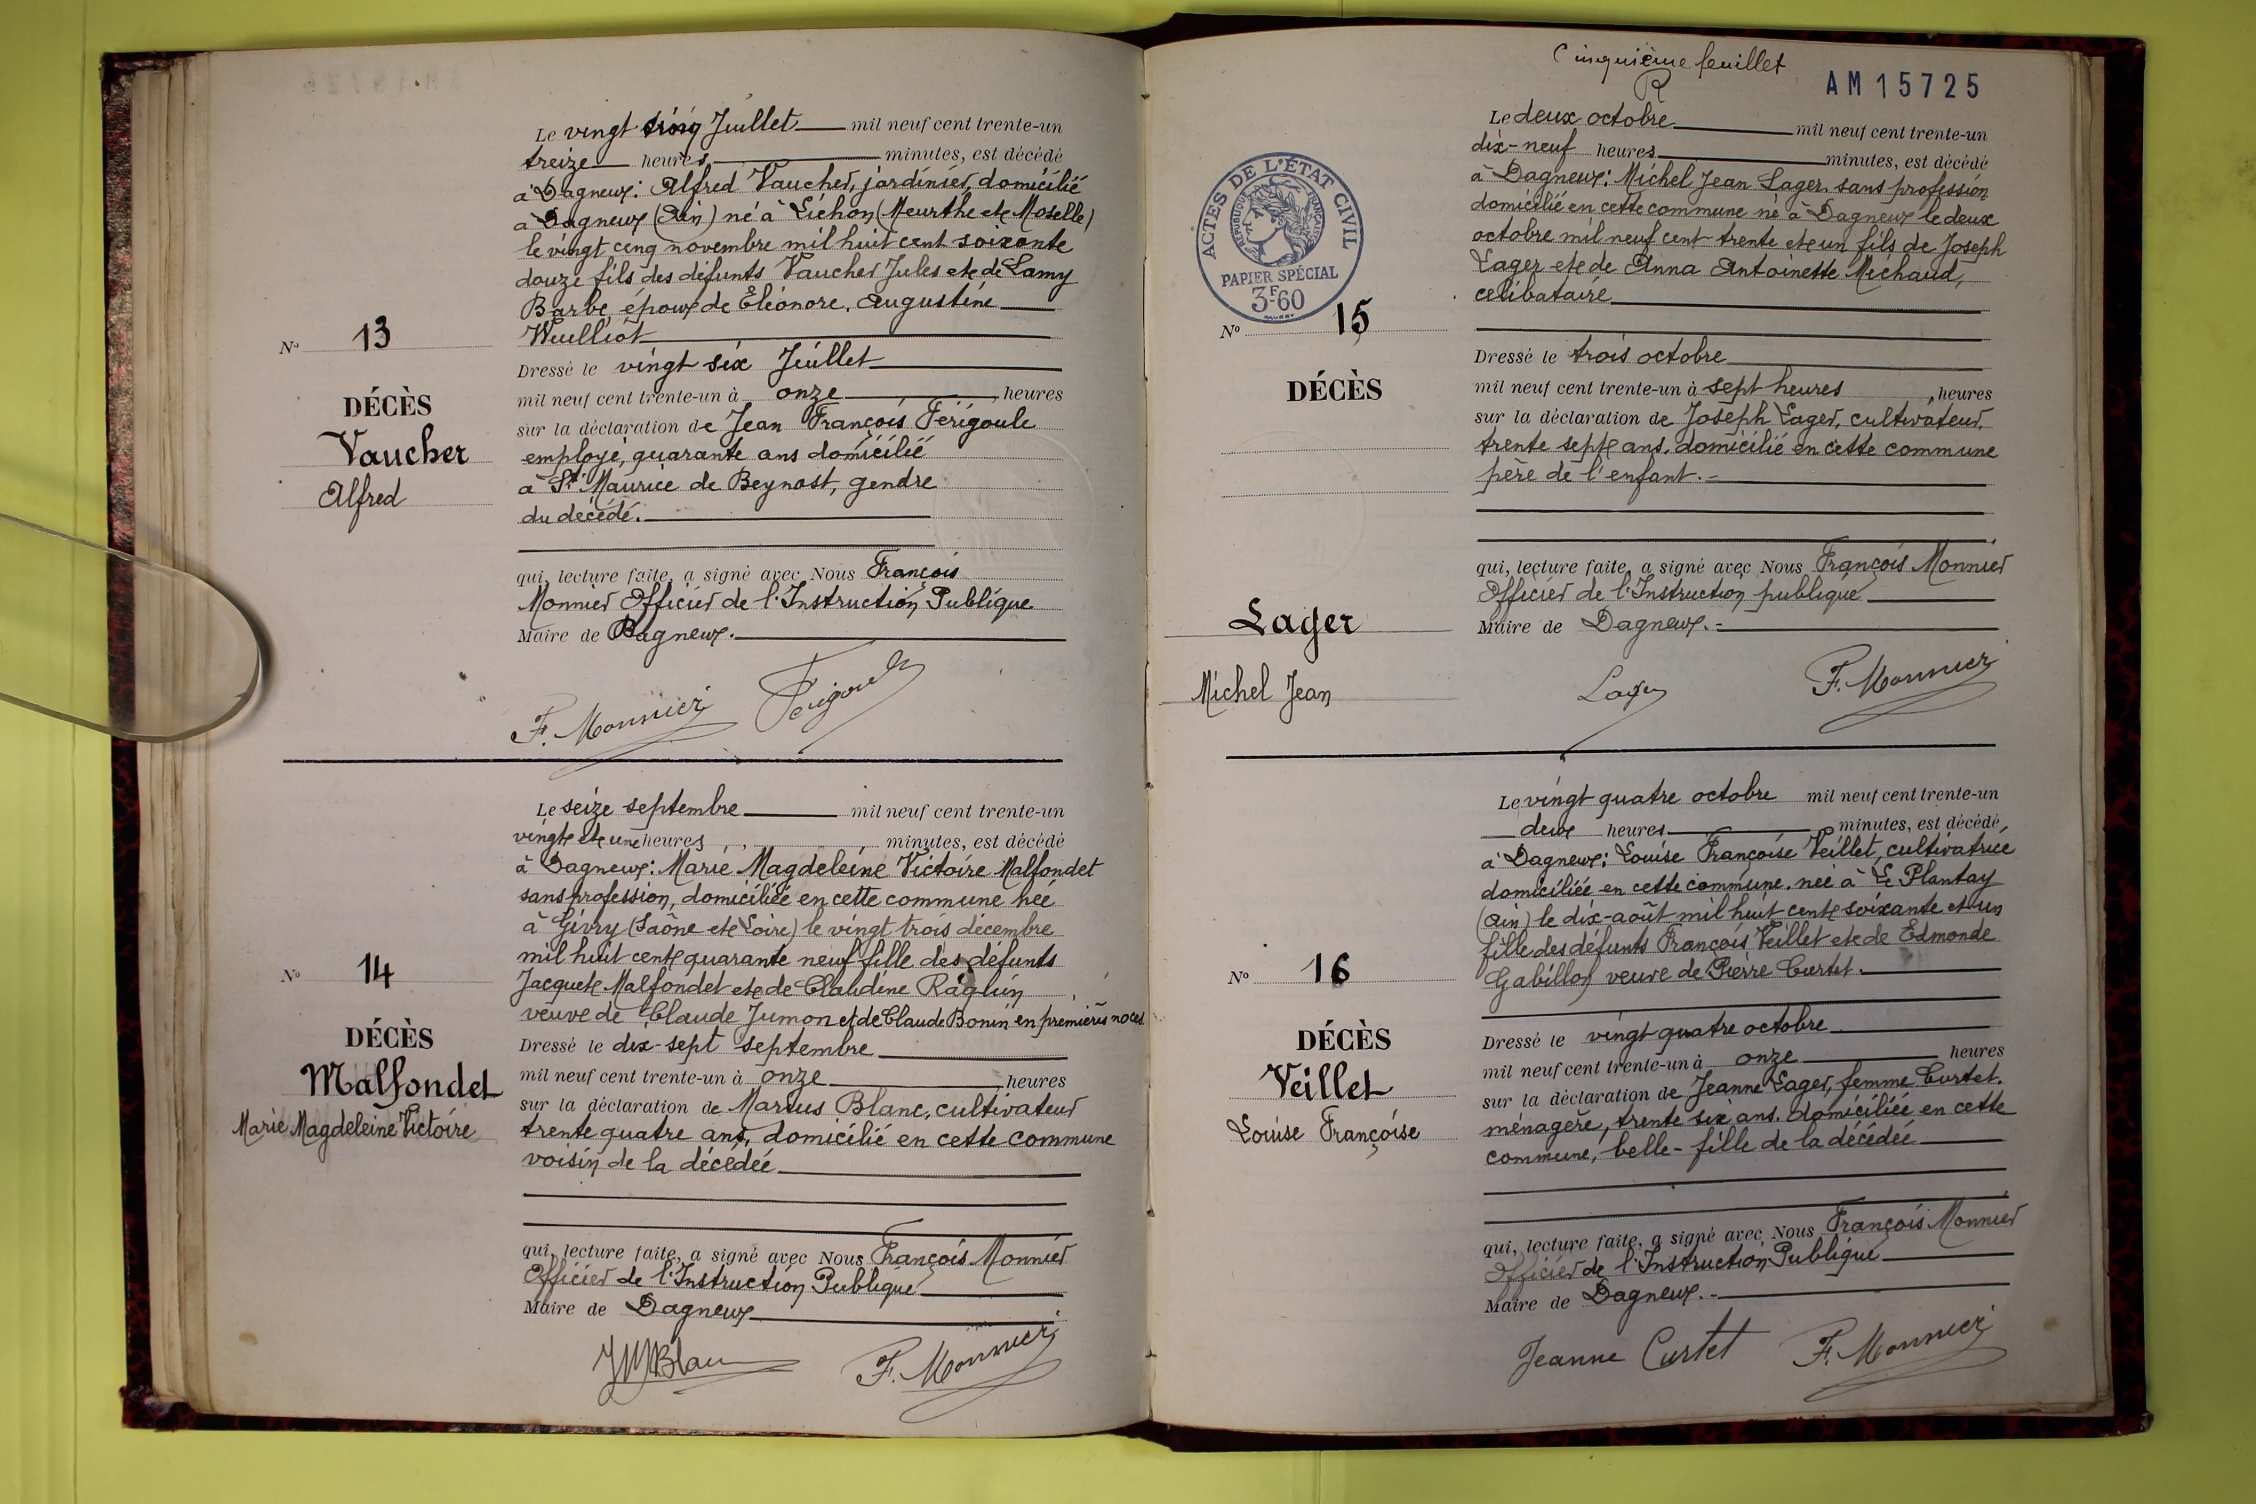 Le vingt Juillet mil neuf cent trente-un
treize heures, minutes, est décédé
à Dagneux: Alfred Vaucher, jardinier, domicilié
à Dagneux (Ain) né à (Meurthe et Moselle)
le vingt cinq novembre mil huit cent soixante
douze fils des défunts Vaucher Jules et de Lamy
Barbe, époux de Eléonore, Augustine
Wuilliot
Nº 13
DÉCÈS
Vaucher
Alfred
Dressé le vingt six Juillet
mil neuf cent trente-un à onze heures
sur la déclaration de Jean François Ferigoule
employé, quarante ans domicilié
à St Maurice de Beynost, gendre
du décédé.
qui, lecture faite, a signé avec Nous François
Monnier Officier de l'Instruction Publique
Maire de Dagneux.
F. Monnier Ferigoule
Le seize septembre mil neuf cent trente-un
vingt et une heures minutes, est décédé
à Dagneux: Marie Magdeleine Victoire Malfondet
sans profession, domiciliée en cette commune née
à Givry (Saône et Loire) le vingt trois décembre
mil huit cent quarante neuf fille des défunts
Jacques Malfondet et de Claudine Raglin
veuve de Claude Jumon et de Claude Bonin en premières noces
Nº 14
DÉCÈS
Malfondet
Marie Magdeleine Victoire
Dressé le dix-sept septembre
mil neuf cent trente-un à onze heures
sur la déclaration de Marius Blanc, cultivateur
trente quatre ans, domicilié en cette commune
voisin de la décédée
qui, lecture faite, a signé avec Nous François Monnier
Officier de l'Instruction Publique
Maire de Dagneux
Blanc F. Monnier
Cinquième feuillet
AM15725
ACTES DE L'ÉTAT CIVIL
REPUBLIQUE FRANÇAISE
PAPIER SPÉCIAL
3F60
Le deux octobre mil neuf cent trente-un
dix-neuf heures minutes, est décédé
à Dagneux: Michel Jean Lager sans profession
domicilié en cette commune né à Dagneux le deux
octobre mil neuf cent trente et un fils de Joseph
Lager et de Anna Antoinette Michaud,
célibataire
Nº 15
DÉCÈS
Lager
Michel Jean
Dressé le trois octobre
mil neuf cent trente-un à sept heures, heures
sur la déclaration de Joseph Lager, cultivateur,
trente sept ans, domicilié en cette commune
père de l'enfant.
qui, lecture faite, a signé avec Nous François Monnier
Officier de l'Instruction publique
Maire de Dagneux.
Lager F. Monnier
Le vingt quatre octobre mil neuf cent trente-un
deux heures minutes, est décédé,
à Dagneux: Louise Françoise Veillet, cultivatrice
domiciliée en cette commune, née à Le Plantay
(Ain) le dix-août mil huit cent soixante et un
fille des défunts François Veillet et de Edmonde
Gabillon veuve de Pierre Curtet.
Nº 16
DÉCÈS
Veillet
Louise Françoise
Dressé le vingt quatre octobre
mil neuf cent trente-un à onze heures
sur la déclaration de Jeanne Lager, femme Curtet,
ménagère, trente six ans, domiciliée en cette
commune, belle-fille de la décédée
qui, lecture faite, a signé avec Nous François Monnier
Officier de l'Instruction Publique
Maire de Dagneux.
Jeanne Curtet F. Monnier